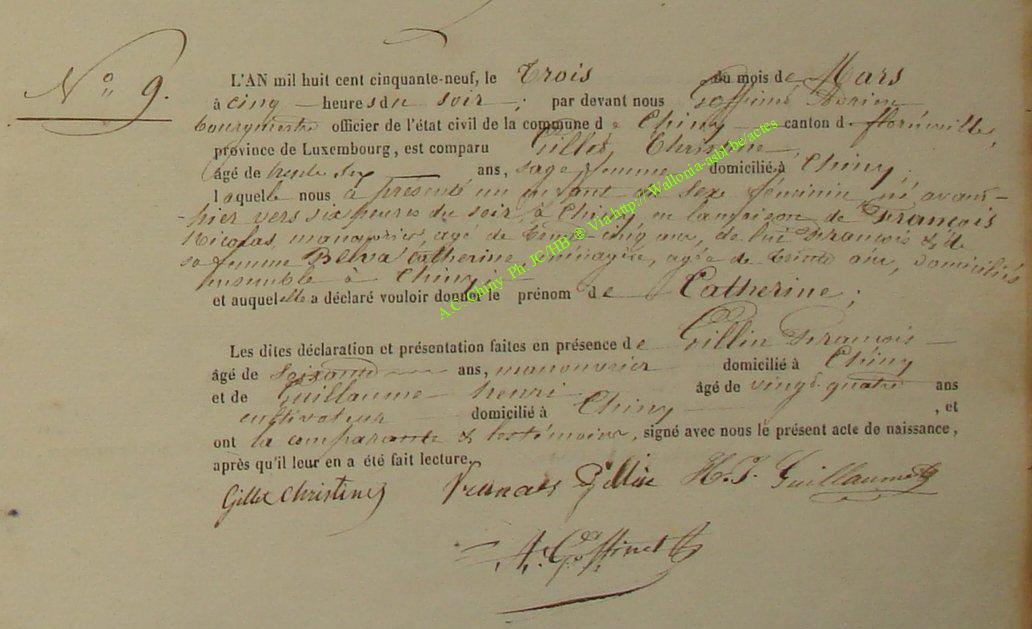 N° 9.
L'AN mil huit cent cinquante-neuf, le Trois du mois de Mars
à cinq heures du soir ; par devant nous Goffinet Adrien
bourgmestre officier de l'état civil de la commune de Chiny canton de florenville,
province de Luxembourg, est comparu Gillet Christine,
âgé de trente six ans, sage femme domicilié à Chiny,
laquelle nous à présenté un enfant du sexe féminin né avant-
hier vers six heures du soir à Chiny, en la maison de François
Nicolas, manouvrier, agé de trente-cinq ans, de lui François & de
sa femme Belva Catherine, ménagère, agée de trente ans, domiciliés
ensemble à Chiny ;
et auquel elle a déclaré vouloir donner le prénom de Catherine ;
Les dites déclaration et présentation faites en présence de Gillin François
âgé de soixante ans, manouvrier domicilié à Chiny
et de Guillaume henri âgé de vingt quatre ans
cultivateur domicilié à Chiny , et
ont la comparante & les témoins, signé avec nous le présent acte de naissance,
après qu'il leur en a été fait lecture.
Gillet Christine François Gillin H. J. Guillaume
A. Goffinet
A.C. Chiny Ph JC/HB ® Via http://Wallonia-asbl.be/actes